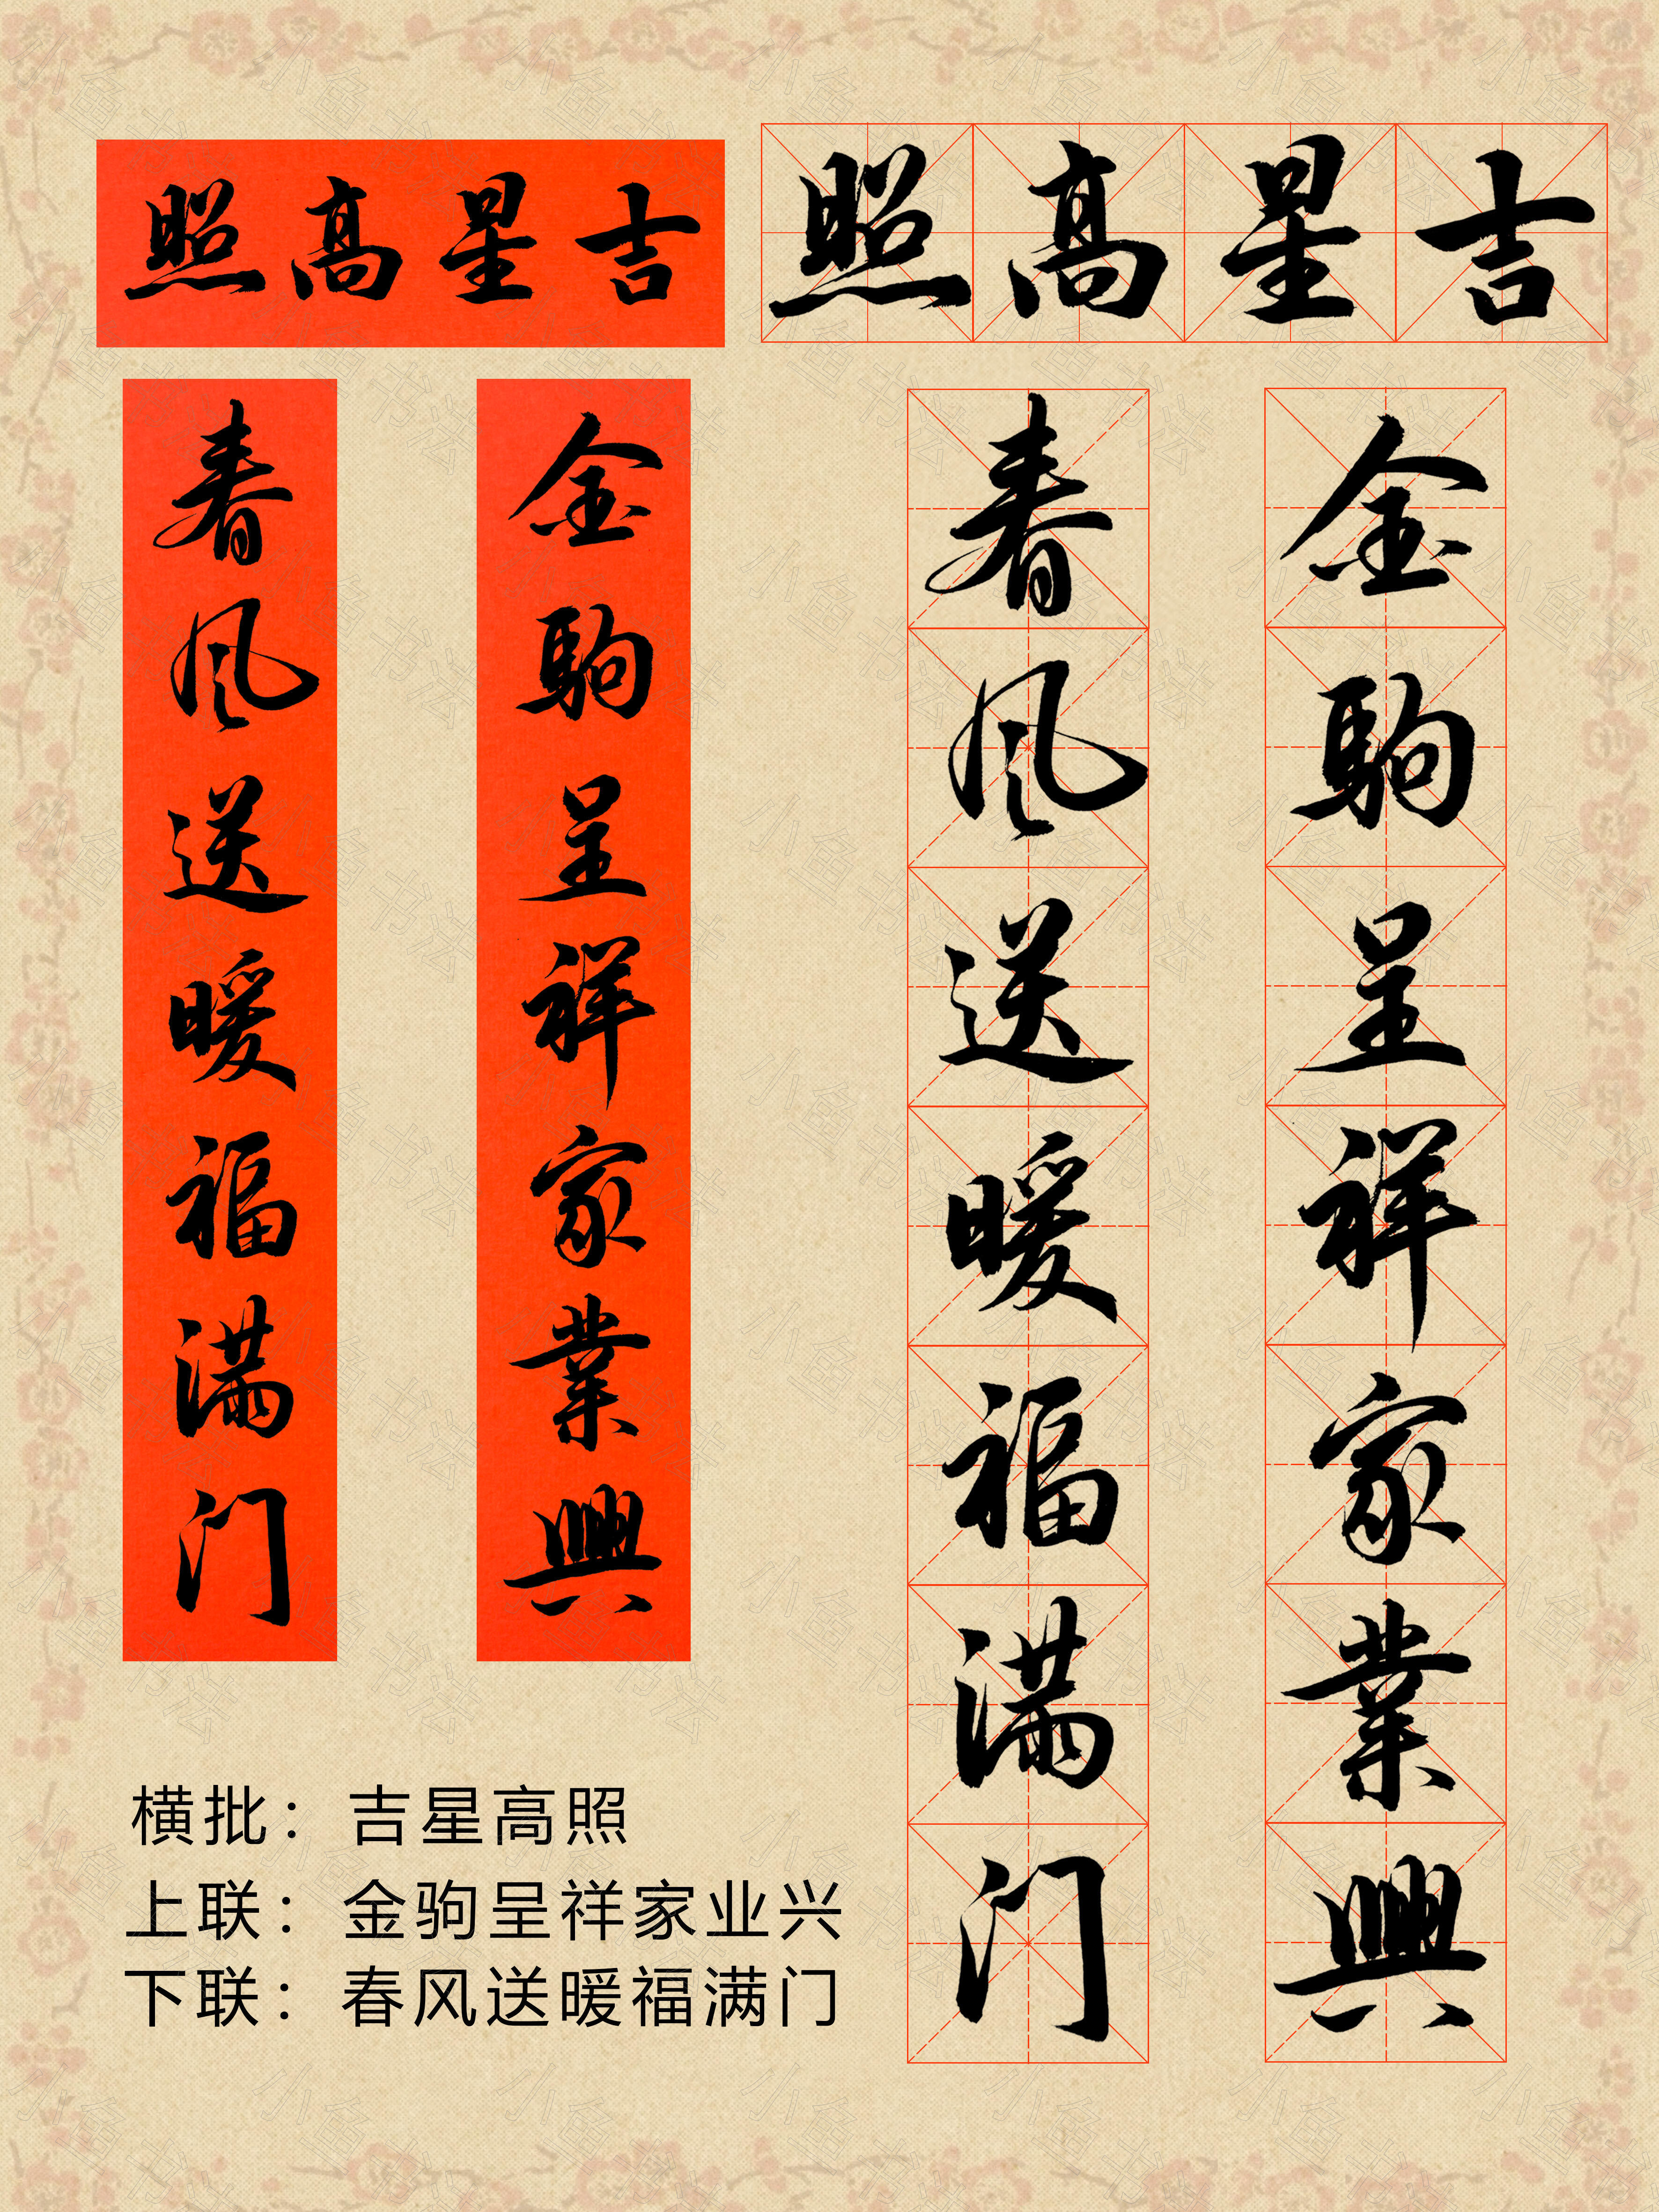 吉星高照
金駒呈祥家業興
春风送暖福满门
吉星高照
金駒呈祥家業興
春风送暖福满门
横批：吉星高照
上联：金驹呈祥家业兴
下联：春风送暖福满门
小鱼书法